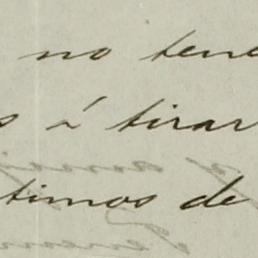 no tene
s á tirar
timos de